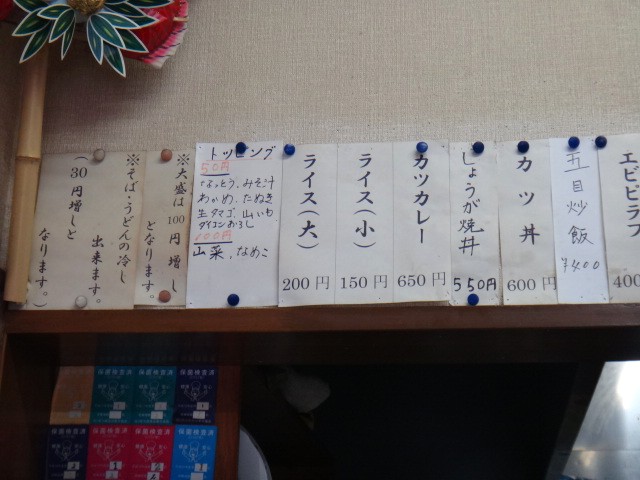 エビピラフ
400
五目炒飯
¥400
カツ丼
600円
しょうが焼丼
550円
カツカレー
650円
ライス(小)
150円
ライス(大)
200円
トッピング
50円
なっとう、みそ汁
わかめ、たぬき
生タマゴ、山いも
ダイコンおろし
100円
山菜、なめこ
※大盛は100円増し
となります。
※そば・うどんの冷し
出来ます。
(30円増しと
なります。)